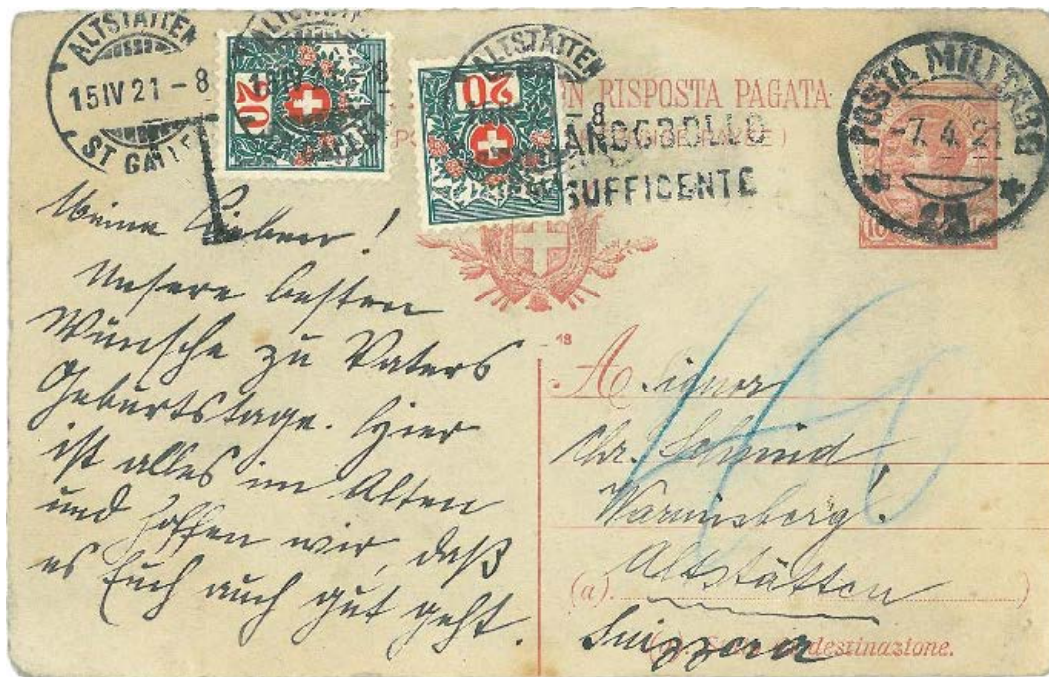 ALTSTÄTTEN
15 IV 21 - 8
ST GALLEN
20
20
ALTSTÄTTEN
8
N RISPOSTA PAGATA
ANCOBOLLO
SUFFICENTE
POSTA MILITARE
-7.4.21
10
T
Meine Lieben!
Unsere besten
Wünsche zu Vaters
Geburtstage. Hier
ist alles im Alten
und hoffen wir, daß
es Euch auch gut geht.
18
A
Chr. Schmid
Altstätten
(a)
Suizzera
destinazione.